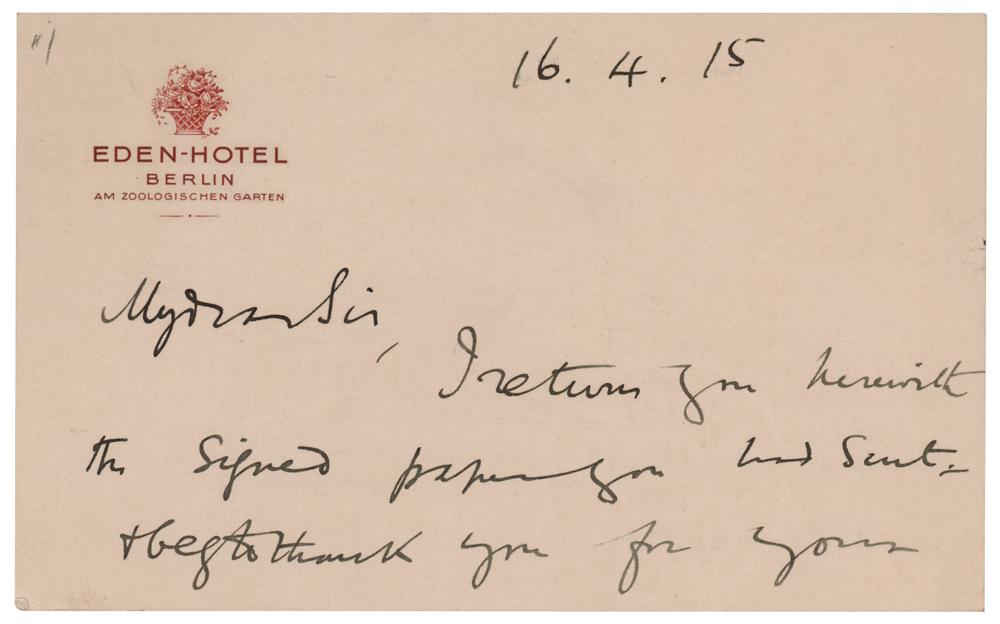 16. 4. 15
EDEN-HOTEL
BERLIN
AM ZOOLOGISCHEN GARTEN
My dear Sir,
I return you herewith
the signed paper you had sent -
& beg to thank you for your